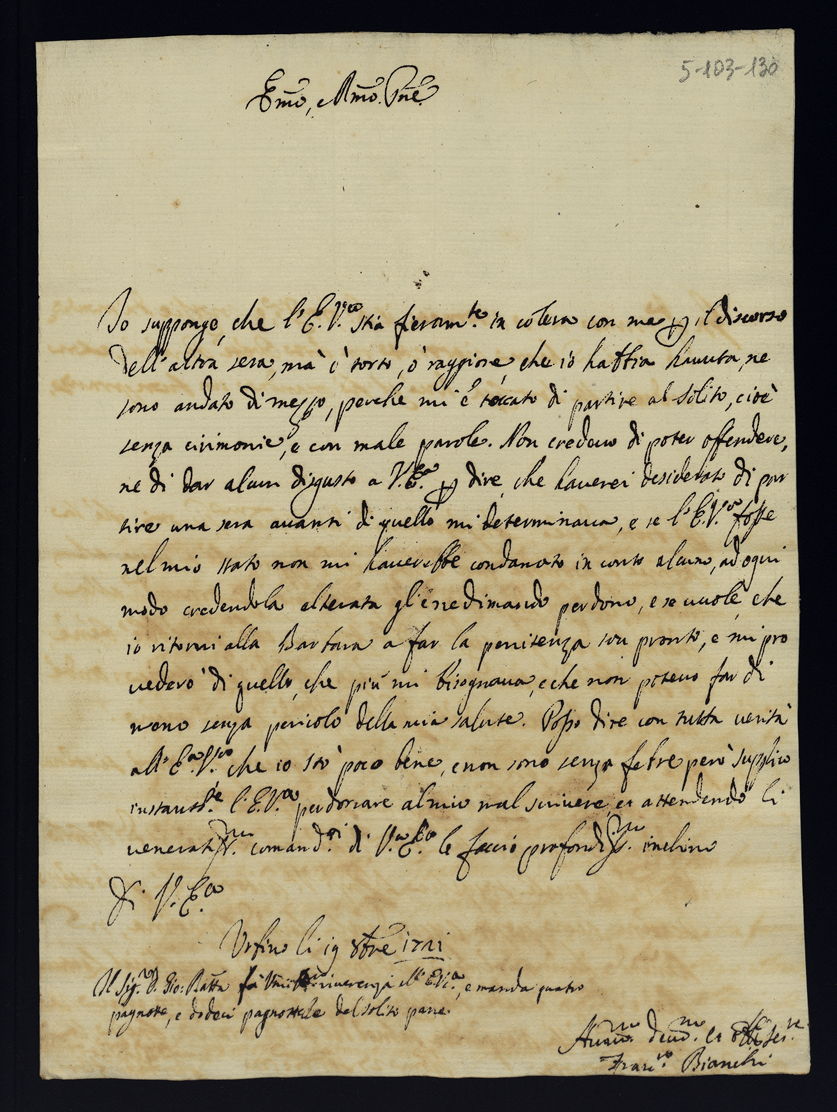 5-103-130
Emo, e Rmo. Pne.
Io suppongo, che l'E.V.ra stia fieram.te in colera con me per il discorso
dell'altra sera, mà ò torto, ò raggione, che io habbia hauuta, ne
sono andato di mezzo, perche mi è toccato di partire al solito, cioè
senza cirimonie, e con male parole. Non credeuo di poter offendere,
nè di dar alcun disgusto a V.E.a per dire, che hauerei desiderato di par
tire una sera auanti di quello mi determinaua, e se l'E.V.ra fosse
nel mio stato non mi hauerebbe condanato in conto alcuno, ad ogni
modo credendola alterata gl'ene dimando perdono, e se uuole, che
io ritorni alla Barbara a far la penitenza son pronto, e mi pro
uederò di quello, che più mi bisognaua, e che non poteuo far di
meno senza pericolo della mia salute. Posso dire con tutta uerità
all'E.a V.ra che io stò poco bene, e non sono senza febre però supplico
l'E.V.ra perdonare al mio mal scriuere et attendendo li
comand.ti di V.ra E.a le faccio profondiss.mo inchino
Di V.E.a
Urbino li 19 8bre 1721
Il Sig.r D. Gio: Batta fà riuerenza all'E.V.a, e manda quatro
pagnotte, e dodeci pagnottelle del solito pane.
Seru.re
Bianchi